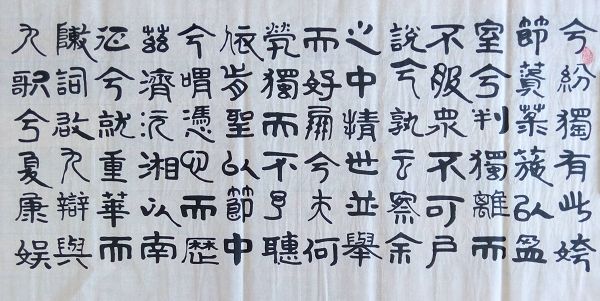 兮紛獨有此姱
節薋菉葹以盈
室兮判獨離而
不服眾不可戶
說兮孰云察余
之中情世並舉
而好朋兮夫何
煢獨而不予聽
依前聖以節中
兮喟憑心而歷
茲濟沅湘以南
征兮就重華而
敶詞啟九辯與
九歌兮夏康娛